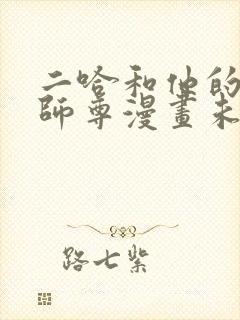 二哈和他的
師尊漫畫未
路七紫